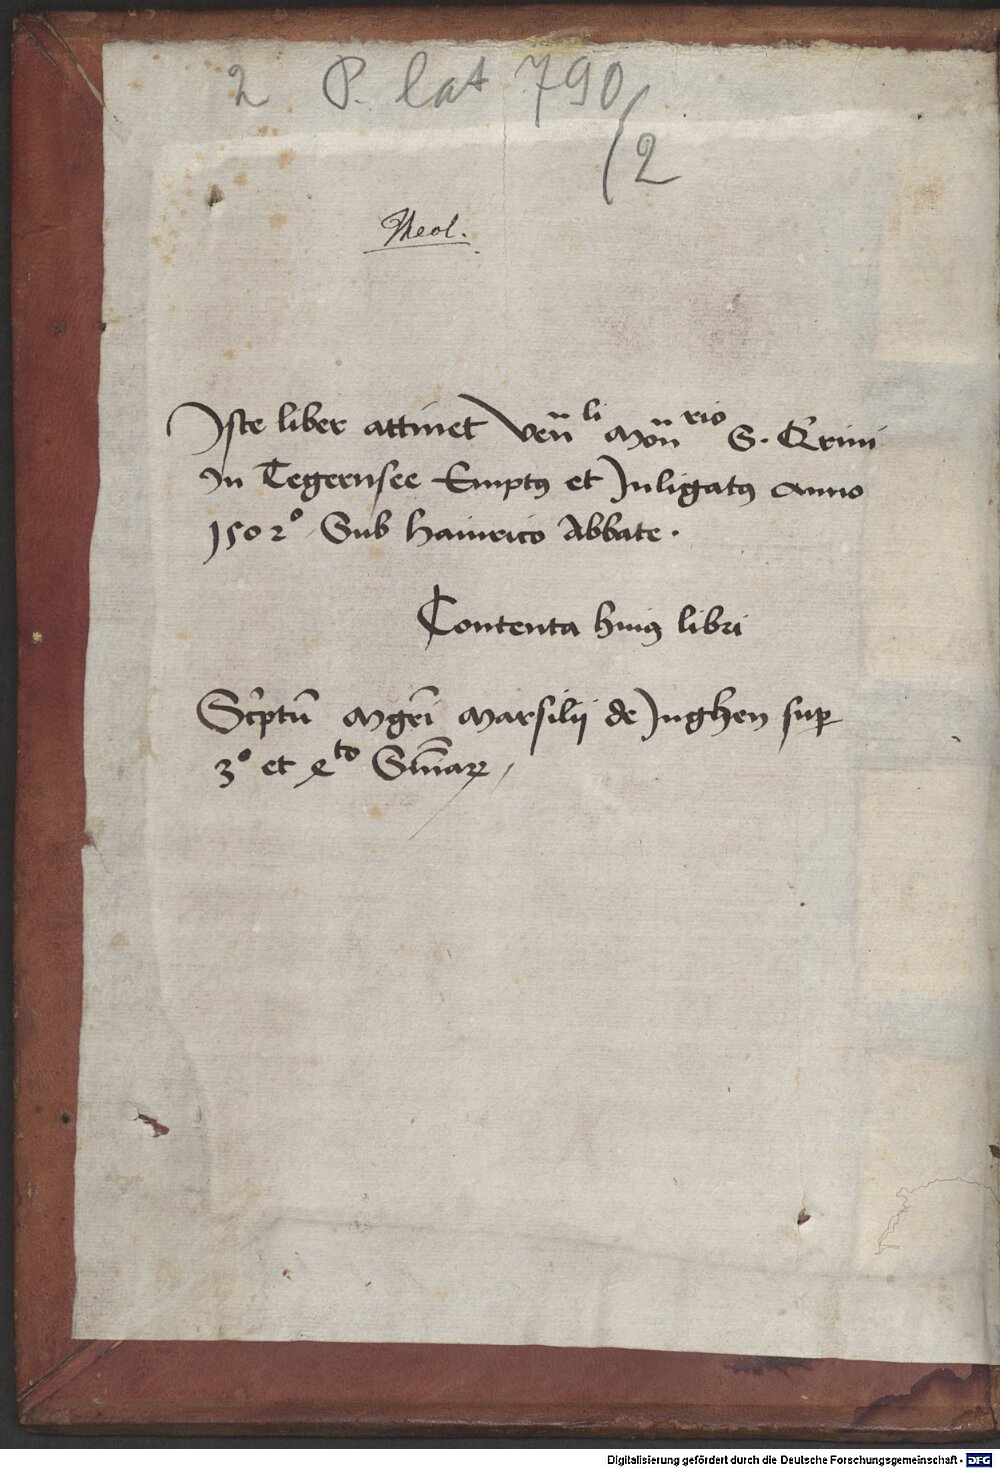 2 P. lat 790/2
Theol.
Iste liber attinet Ven̄li Mōn̄rio S. Q̄rini
In Tegernsee Emptꝰ et Inligatꝰ Anno
1502° Sub Hainrico Abbate.
Contenta huiꝰ libri
Sc̄ptū Mgr̄i Marsilij de Inghen suꝑ
3° et 4to Sn̄iaꝝ
Digitalisierung gefördert durch die Deutsche Forschungsgemeinschaft - DFG